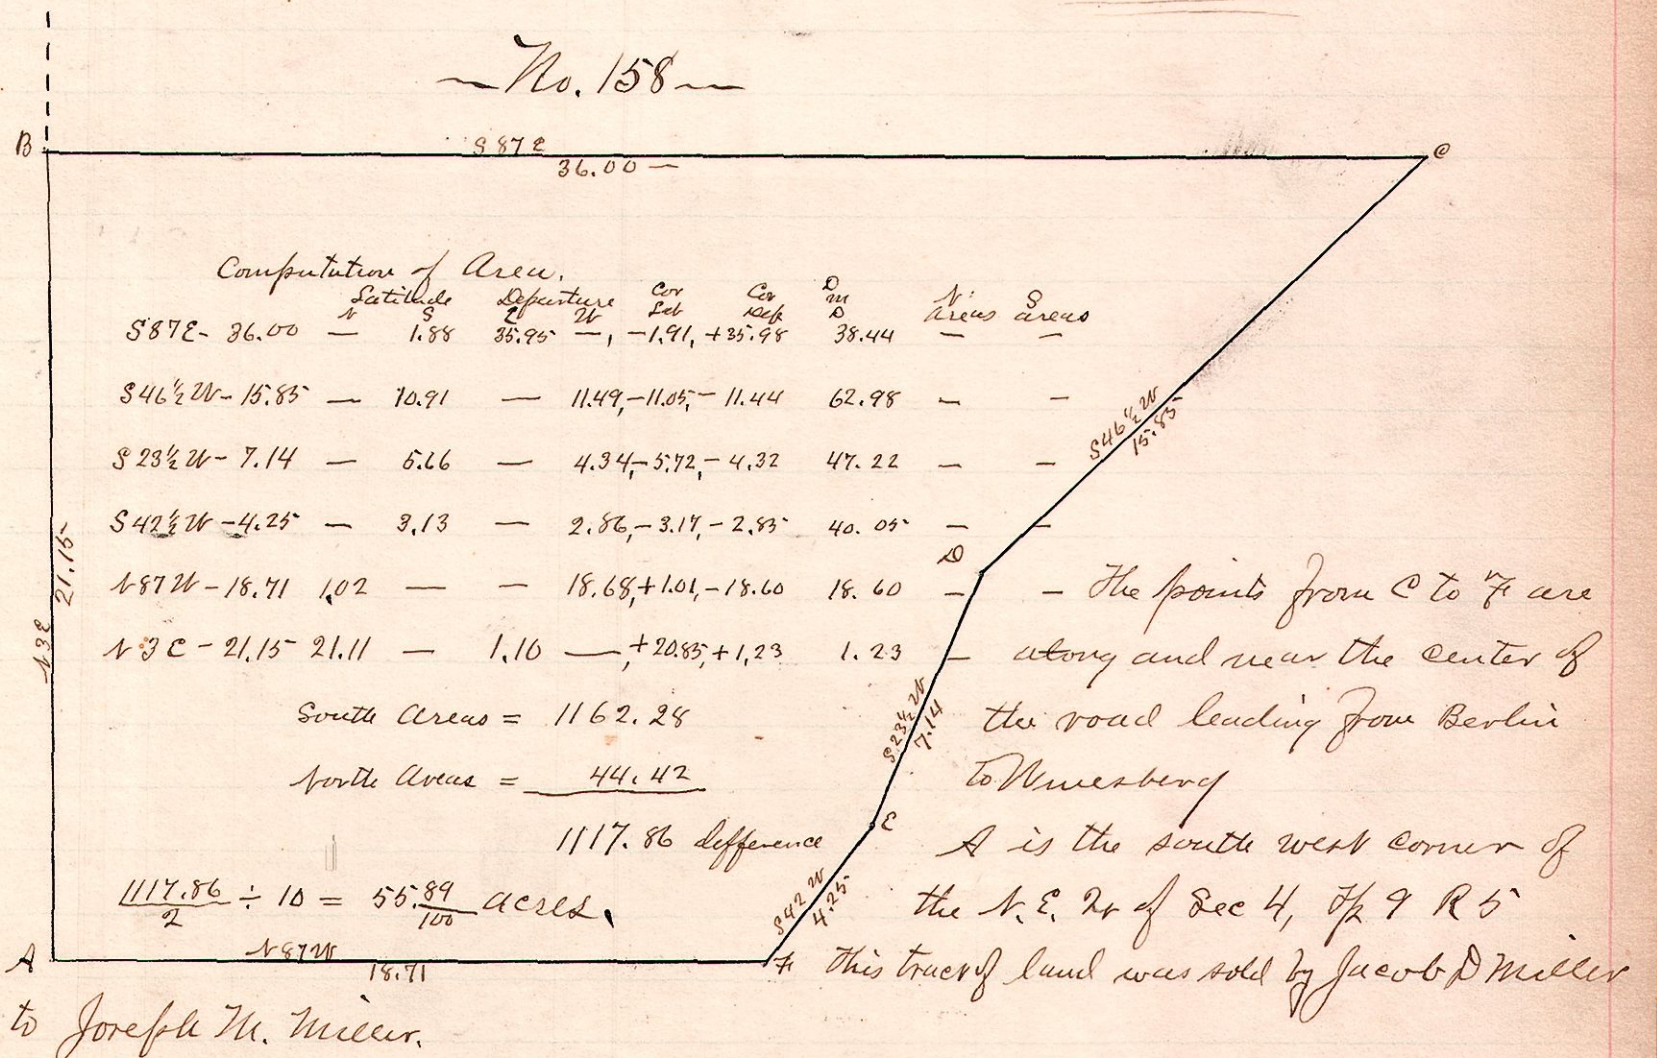 No. 158
B
S 87 E
36.00
C
Computation of Area.
Latitude Departure Cor Cor D N S
N S E W Lat Dep M Areas areas
D
S 87 E - 36.00 — 1.88 35.95 —, -1.91, +35.98 38.44 — —
S 46½ W - 15.85 — 10.91 — 11.49, -11.05, - 11.44 62.98 — —
S 23½ W - 7.14 — 6.66 — 4.34, -5.72, - 4.32 47.22 — —
S 42½ W - 4.25 — 3.13 — 2.86, -3.17, - 2.85 40.05 — —
N 87 W - 18.71 1.02 — — 18.68, +1.01, -18.60 18.60 — —
N 3 E - 21.15 21.11 — 1.10 —, +20.85, +1.23 1.23 —
South Areas = 1162.28
North Areas = 44.42
1117.86 difference
1117.86/2 ÷ 10 = 55.89/100 acres.
N 3 E
21.15
S 46½ W
15.85
D
S 23½ W
7.14
E
S 42 W
4.25
A
N 87 W
18.71
F
The points from C to F are
along and near the center of
the road leading from Berlin
to Winesberg
A is the south west corner of
the N. E. Qr of Sec 4, Tp 9 R 5
This tract of land was sold by Jacob D Miller
to Joseph M. Miller.